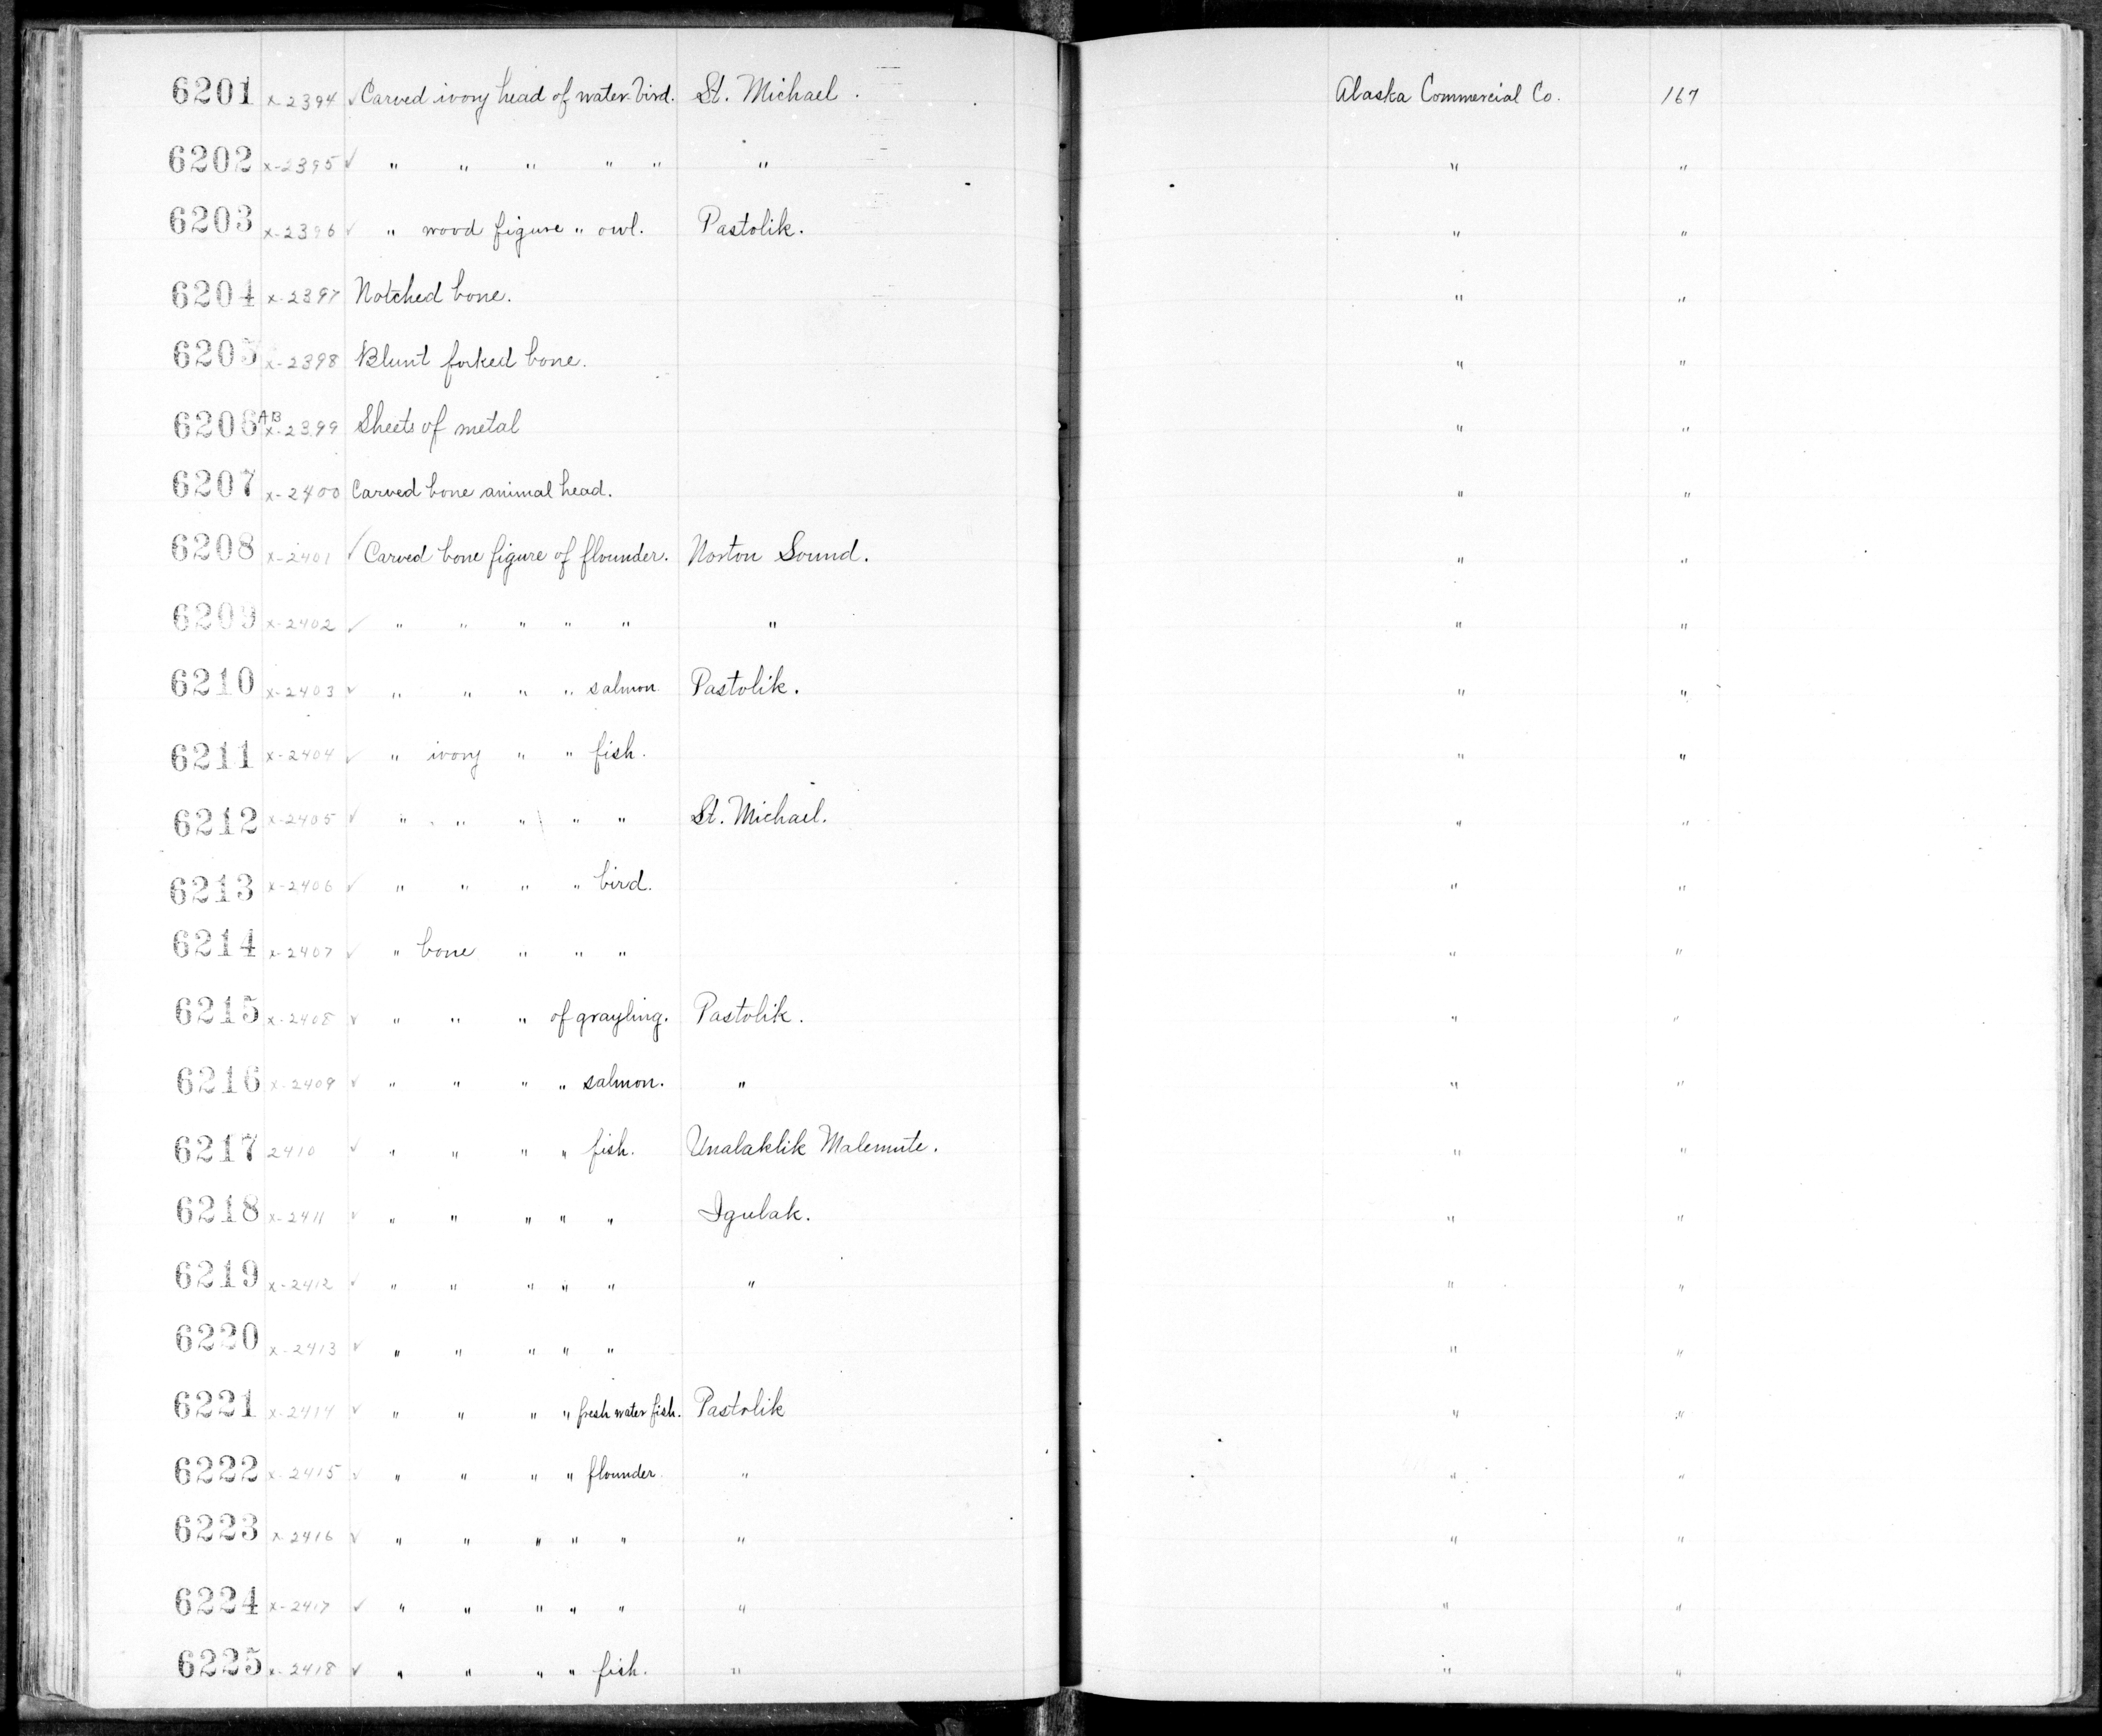 6201 x-2394 ✓ Carved ivory head of water-bird. St. Michael. Alaska Commercial Co. 167
6202 x-2395 ✓ " " " " " " " "
6203 x-2396 ✓ " wood figure " owl. Pastolik. " "
6204 x-2397 Notched bone. " "
6205 x-2398 Blunt forked bone. " "
6206 AB x-2399 Sheets of metal " "
6207 x-2400 Carved bone animal head. " "
6208 x-2401 ✓ Carved bone figure of flounder. Norton Sound. " "
6209 x-2402 ✓ " " " " " " " "
6210 x-2403 ✓ " " " " salmon. Pastolik. " "
6211 x-2404 ✓ " ivory " " fish. " "
6212 x-2405 ✓ " " " " " St. Michael. " "
6213 x-2406 ✓ " " " " bird. " "
6214 x-2407 ✓ " bone " " " " "
6215 x-2408 ✓ " " " of grayling. Pastolik. " "
6216 x-2409 ✓ " " " " salmon. " " "
6217 2410 ✓ " " " " fish. Unalaklik Malemute. " "
6218 x-2411 ✓ " " " " " Igulak. " "
6219 x-2412 ✓ " " " " " " " "
6220 x-2413 ✓ " " " " " " "
6221 x-2414 ✓ " " " " fresh water fish. Pastolik " "
6222 x-2415 ✓ " " " " flounder. " " "
6223 x-2416 ✓ " " " " " " " "
6224 x-2417 ✓ " " " " " " " "
6225 x-2418 ✓ " " " " fish. " " "